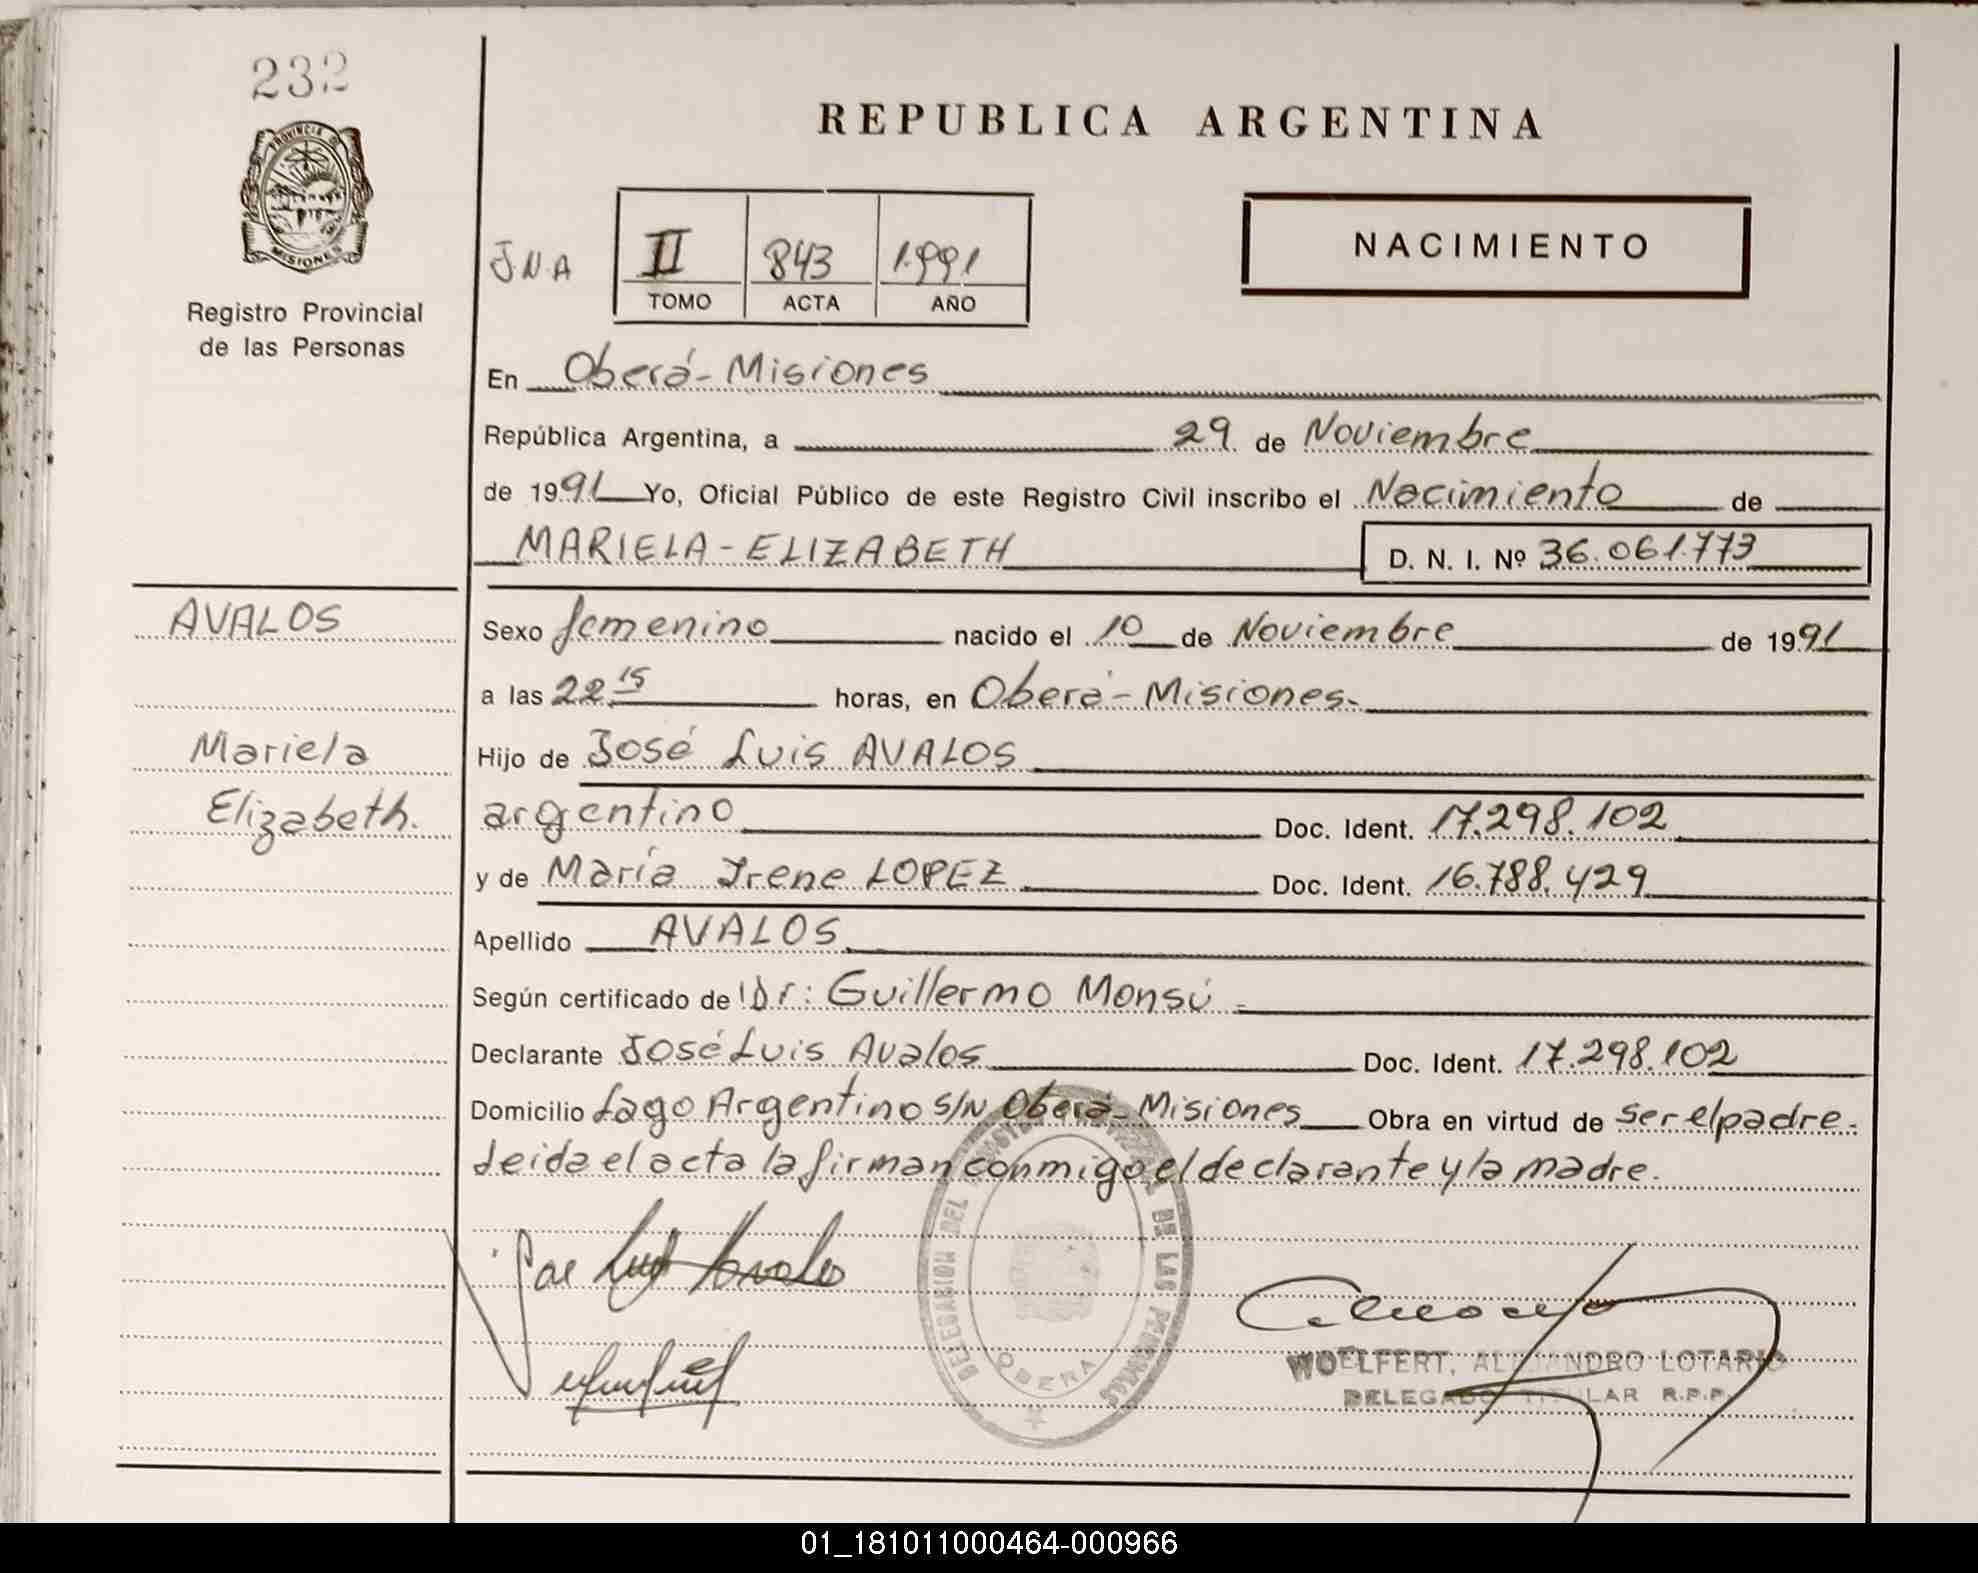 232
PROVINCIA DE
MISIONES
Registro Provincial
de las Personas
REPUBLICA ARGENTINA
J.N.A
II 843 1.991
TOMO ACTA AÑO
NACIMIENTO
En Oberá - Misiones
República Argentina, a 29 de Noviembre
de 1991 Yo, Oficial Público de este Registro Civil inscribo el Nacimiento de
MARIELA - ELIZABETH D. N. I. Nº 36.061.773
AVALOS
Mariela
Elizabeth.
Sexo femenino nacido el 10 de Noviembre de 1991
a las 22 15 horas, en Oberá - Misiones.
Hijo de José Luis AVALOS
argentino Doc. Ident. 17.298.102
y de María Irene LOPEZ Doc. Ident. 16.788.429
Apellido AVALOS
Según certificado de Dr: Guillermo Monsú
Declarante José Luis Avalos Doc. Ident. 17.298.102
Domicilio Lago Argentino S/N Oberá - Misiones Obra en virtud de ser el padre.
Leida el acta la firman conmigo el declarante y la madre.
Jose Luis Avalos
DELEGACION DEL DE LAS PERSONAS
OBERA
WOELFERT, ALEJANDRO LOTARIO
DELEGADO TITULAR R.P.P.
01_181011000464-000966